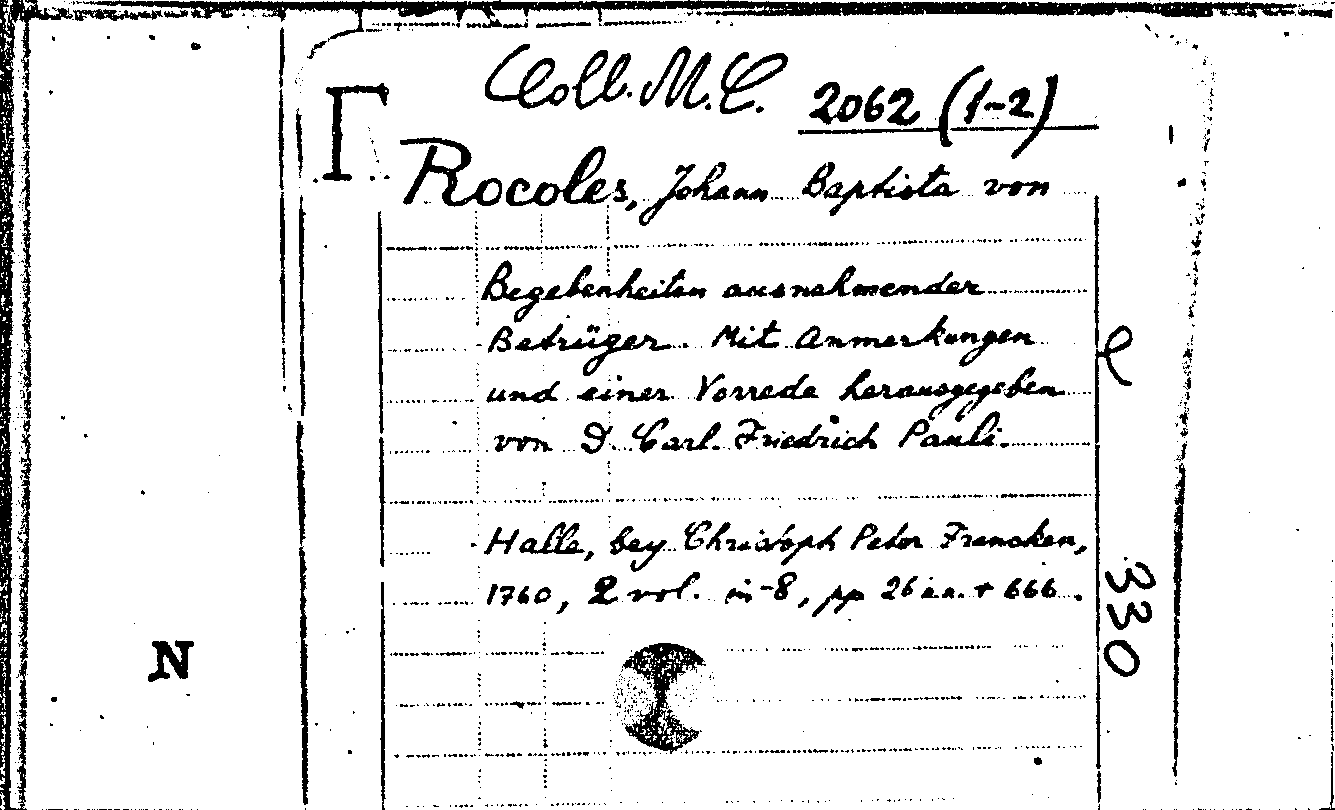 Coll. M. C. 2062 (1-2)
Γ
Rocoles, Johann Baptista von
Begebenheiten ausnehmender
Betrüger. Mit Anmerkungen
und einer Vorrede herausgegeben
von D. Carl. Friedrich Pauli.
Halle, bey Christoph Peter Francken,
1760, 2 vol. in-8, pp 26 nn. + 666.
e
330
N